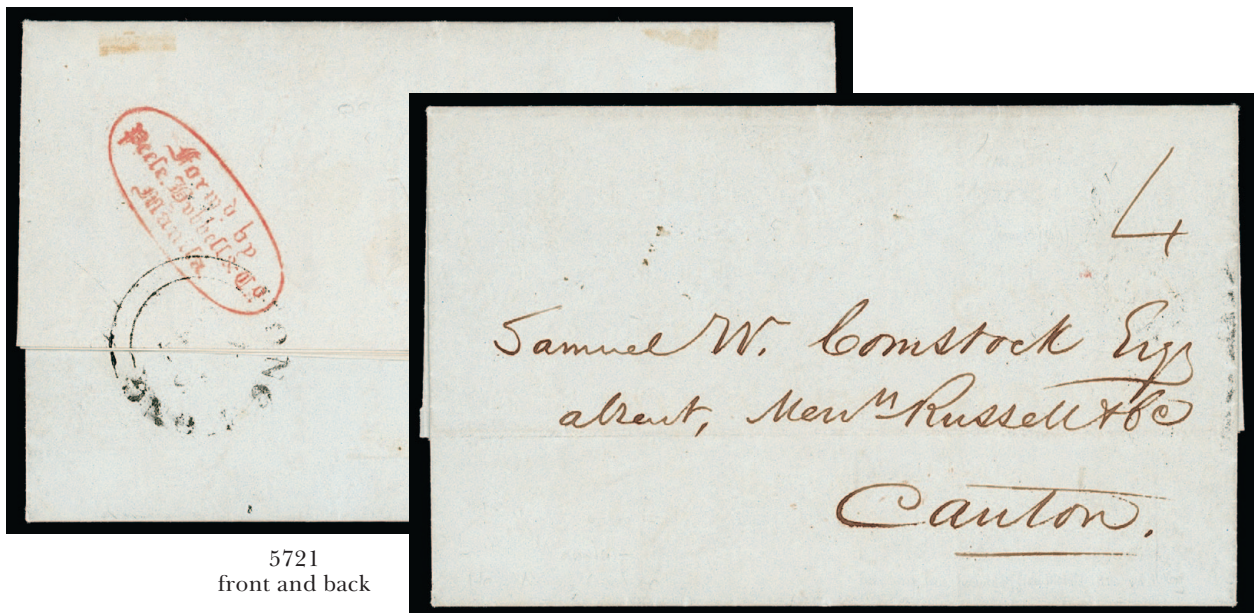 Forw'd by
Peele, Hubbell & Co.
Manila
HONG KONG
4
Samuel W. Comstock Esq
absent, Mess.rs Russell & Co
Canton.
5721
front and back